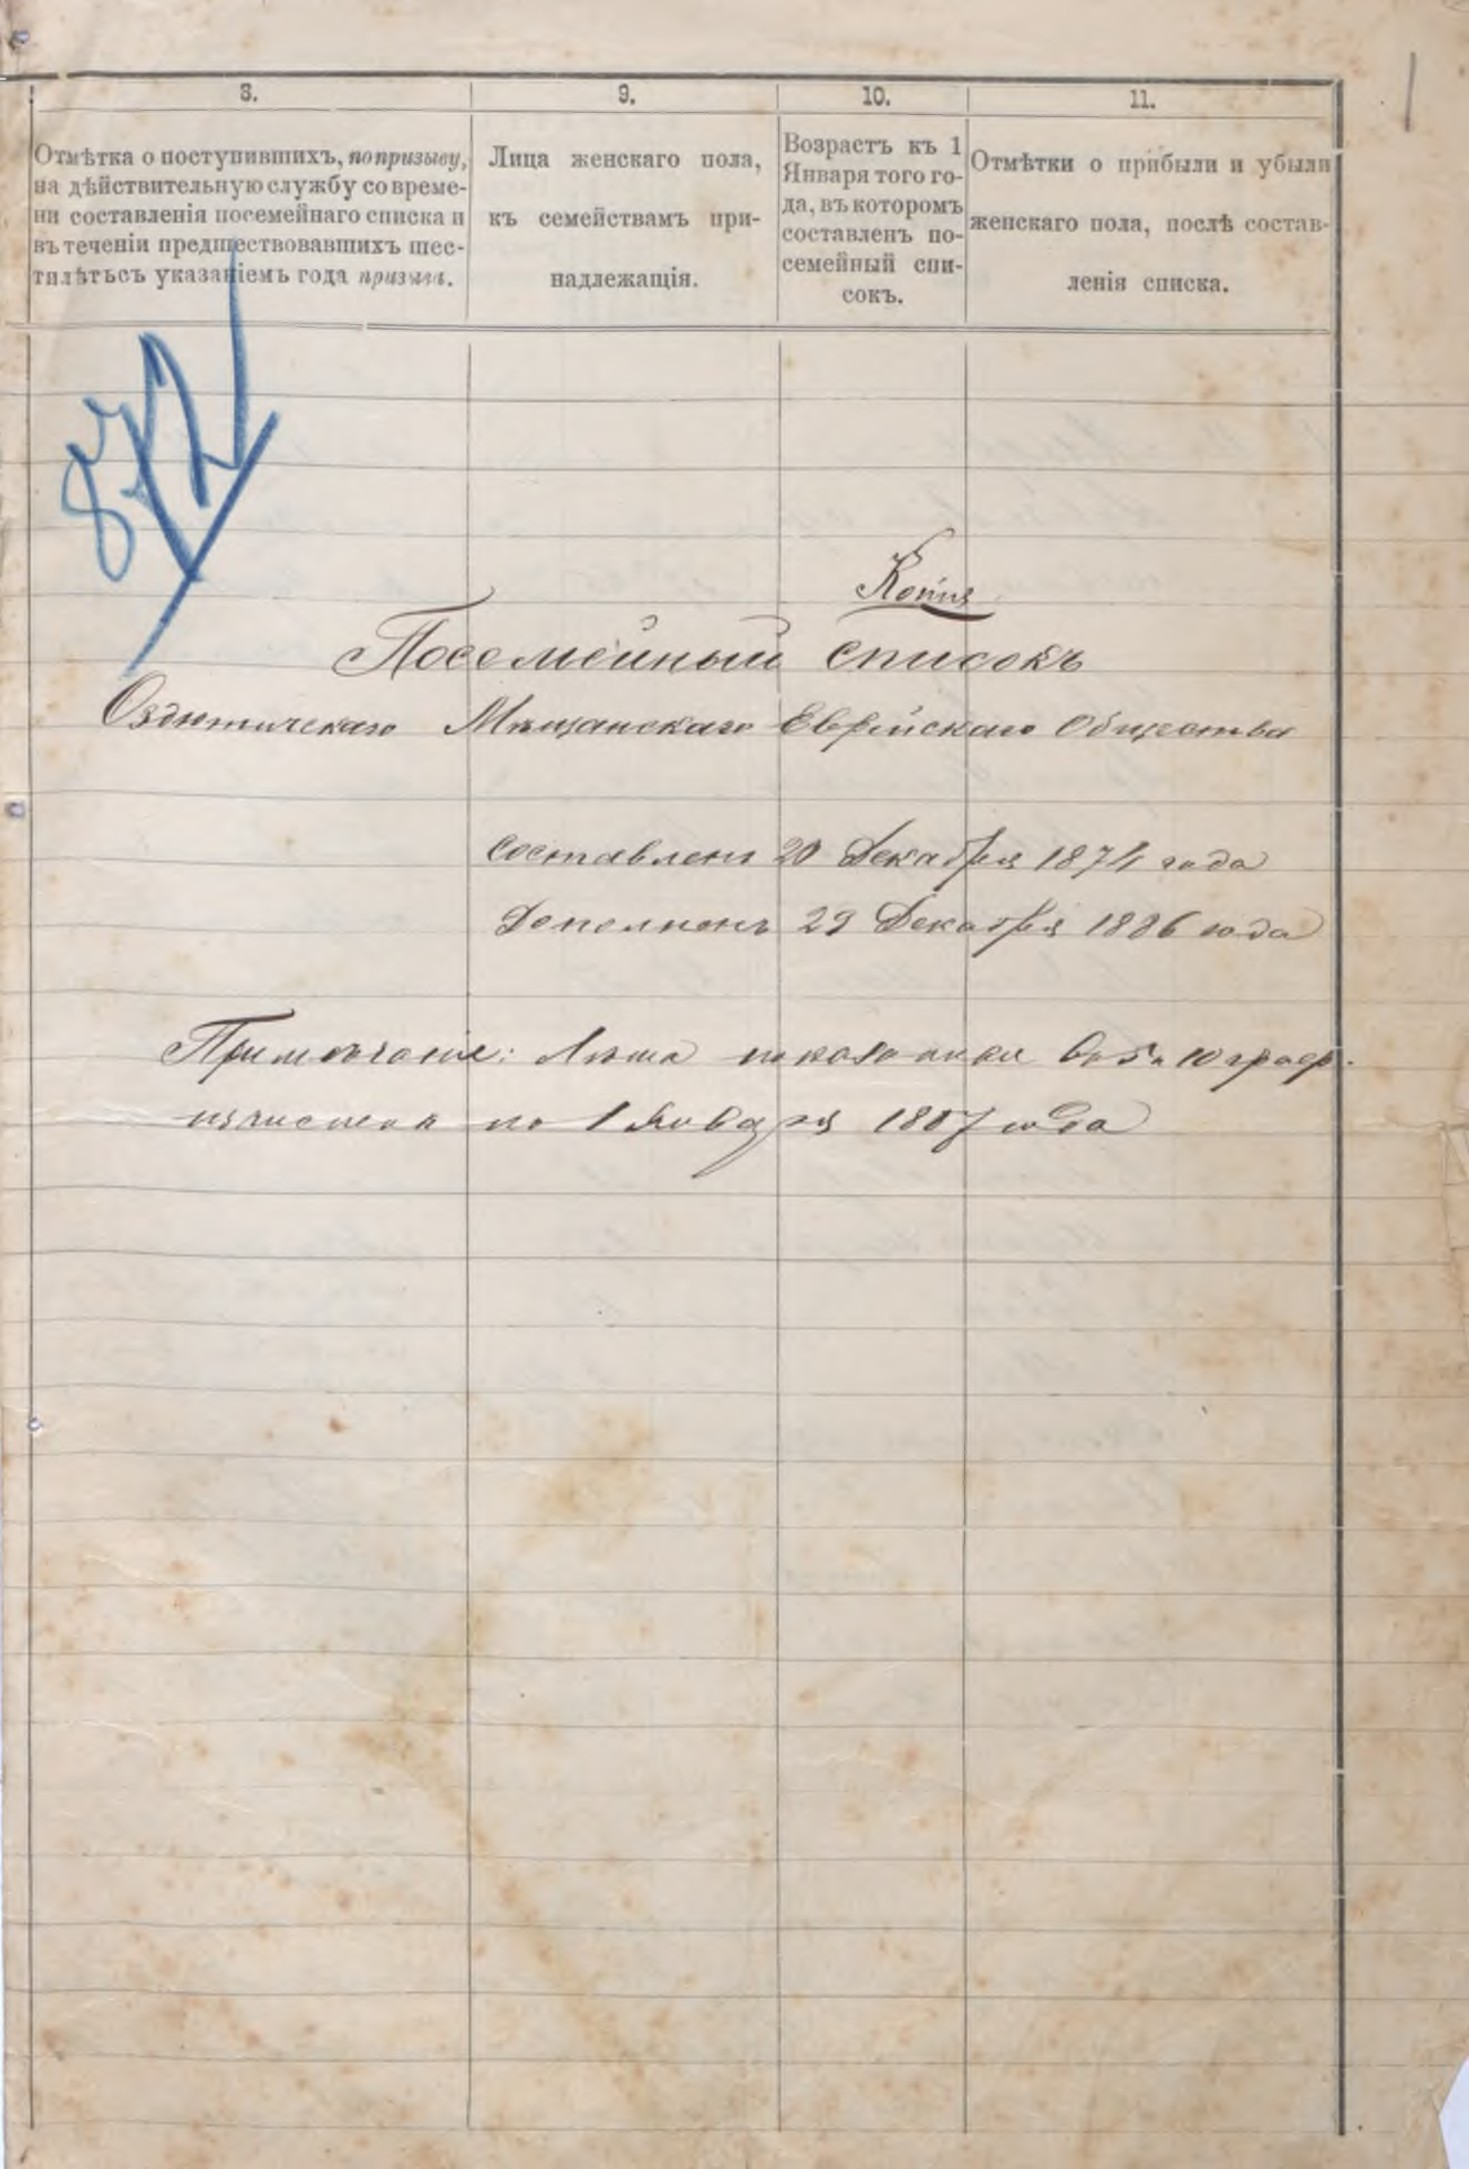 8.
9.
10.
11.
Отмѣтка о поступившихъ, по призыву,
на дѣйствительную службу со време-
ни составленія посемейнаго списка и
въ теченіи предшествовавшихъ шес-
тилѣтьсъ указаніемъ года призыва.
Лица женскаго пола,
къ семействамъ при-
надлежащія.
Возрастъ къ 1
Января того го-
да, въ которомъ
составленъ по-
семейный спи-
сокъ.
Отмѣтки о прибыли и убыли
женскаго пола, послѣ состав-
ленія списка.
Копія
Посемейный списокъ
Оздютическаго Мѣщанскаго Еврейскаго Общества
составленъ 20 Декабря 1874 года
Дополненъ 29 Декабря 1886 года
Примѣчаніе: Лѣта показанныя въ 5 и 10 граф.
изчислены по 1 Января 1887 года